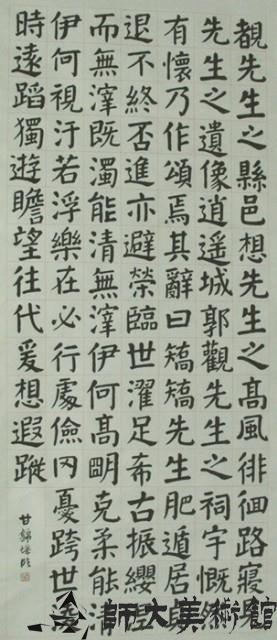 覩先生之縣邑想先生之高風徘徊路寢見
先生之遺像逍遙城郭觀先生之祠宇慨然
有懷乃作頌焉其辭曰矯矯先生肥遁居貞
退不終否進亦避榮臨世濯足希古振纓涅
而無滓既濁能清無滓伊何高明克柔能清
伊何視汙若浮樂在必行處儉罔憂跨世凌
時遠蹈獨遊瞻望往代爰想遐蹤
甘錦
師大美術館